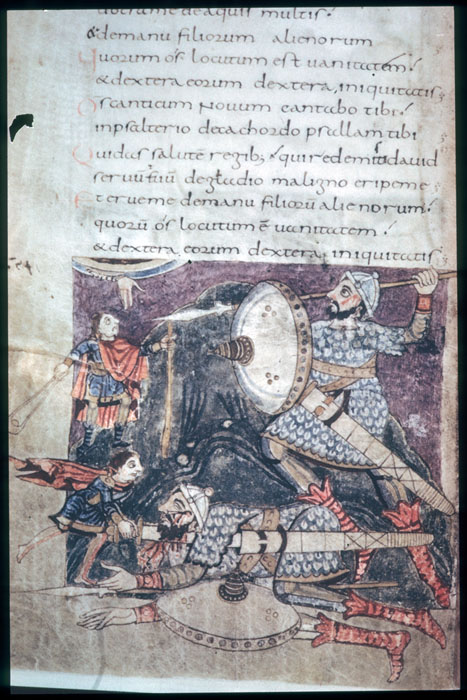 uocrame deaquis multis.
& demanu filiorum alienorum
Quorum ós locutum est uanitatem.
& dextera eorum dextera, iniquitatis
Dś canticum nouum cantabo tibi.
inpsalterio decachordo psallam tibi
Quidas salutē regib; quiredemisti dauid
seruū tuū degladio maligno eripeme
Et erueme demanu filiorū alienorum.
quorū ós locutum ē uanitatem.
& dextera eorum dextera, iniquitatis